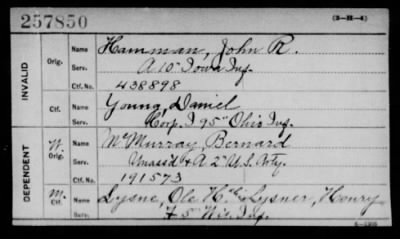 257850 (3-H-4)
INVALID
Orig.
Name Hamman, John R.
Serv. A 10" Iowa Inf.
Ctf. No. 438898
Ctf.
Name Young, Daniel
Serv. Corp. I 95" Ohio Inf.
DEPENDENT
W. Orig.
Name McMurray, Bernard
Serv. Unass'd & A 2" U.S. Arty.
Ctf. No. 191573
M. Ctf.
Name Lysne, Ole H. Lysner, Henry
Serv. F 5" Wis. Inf.